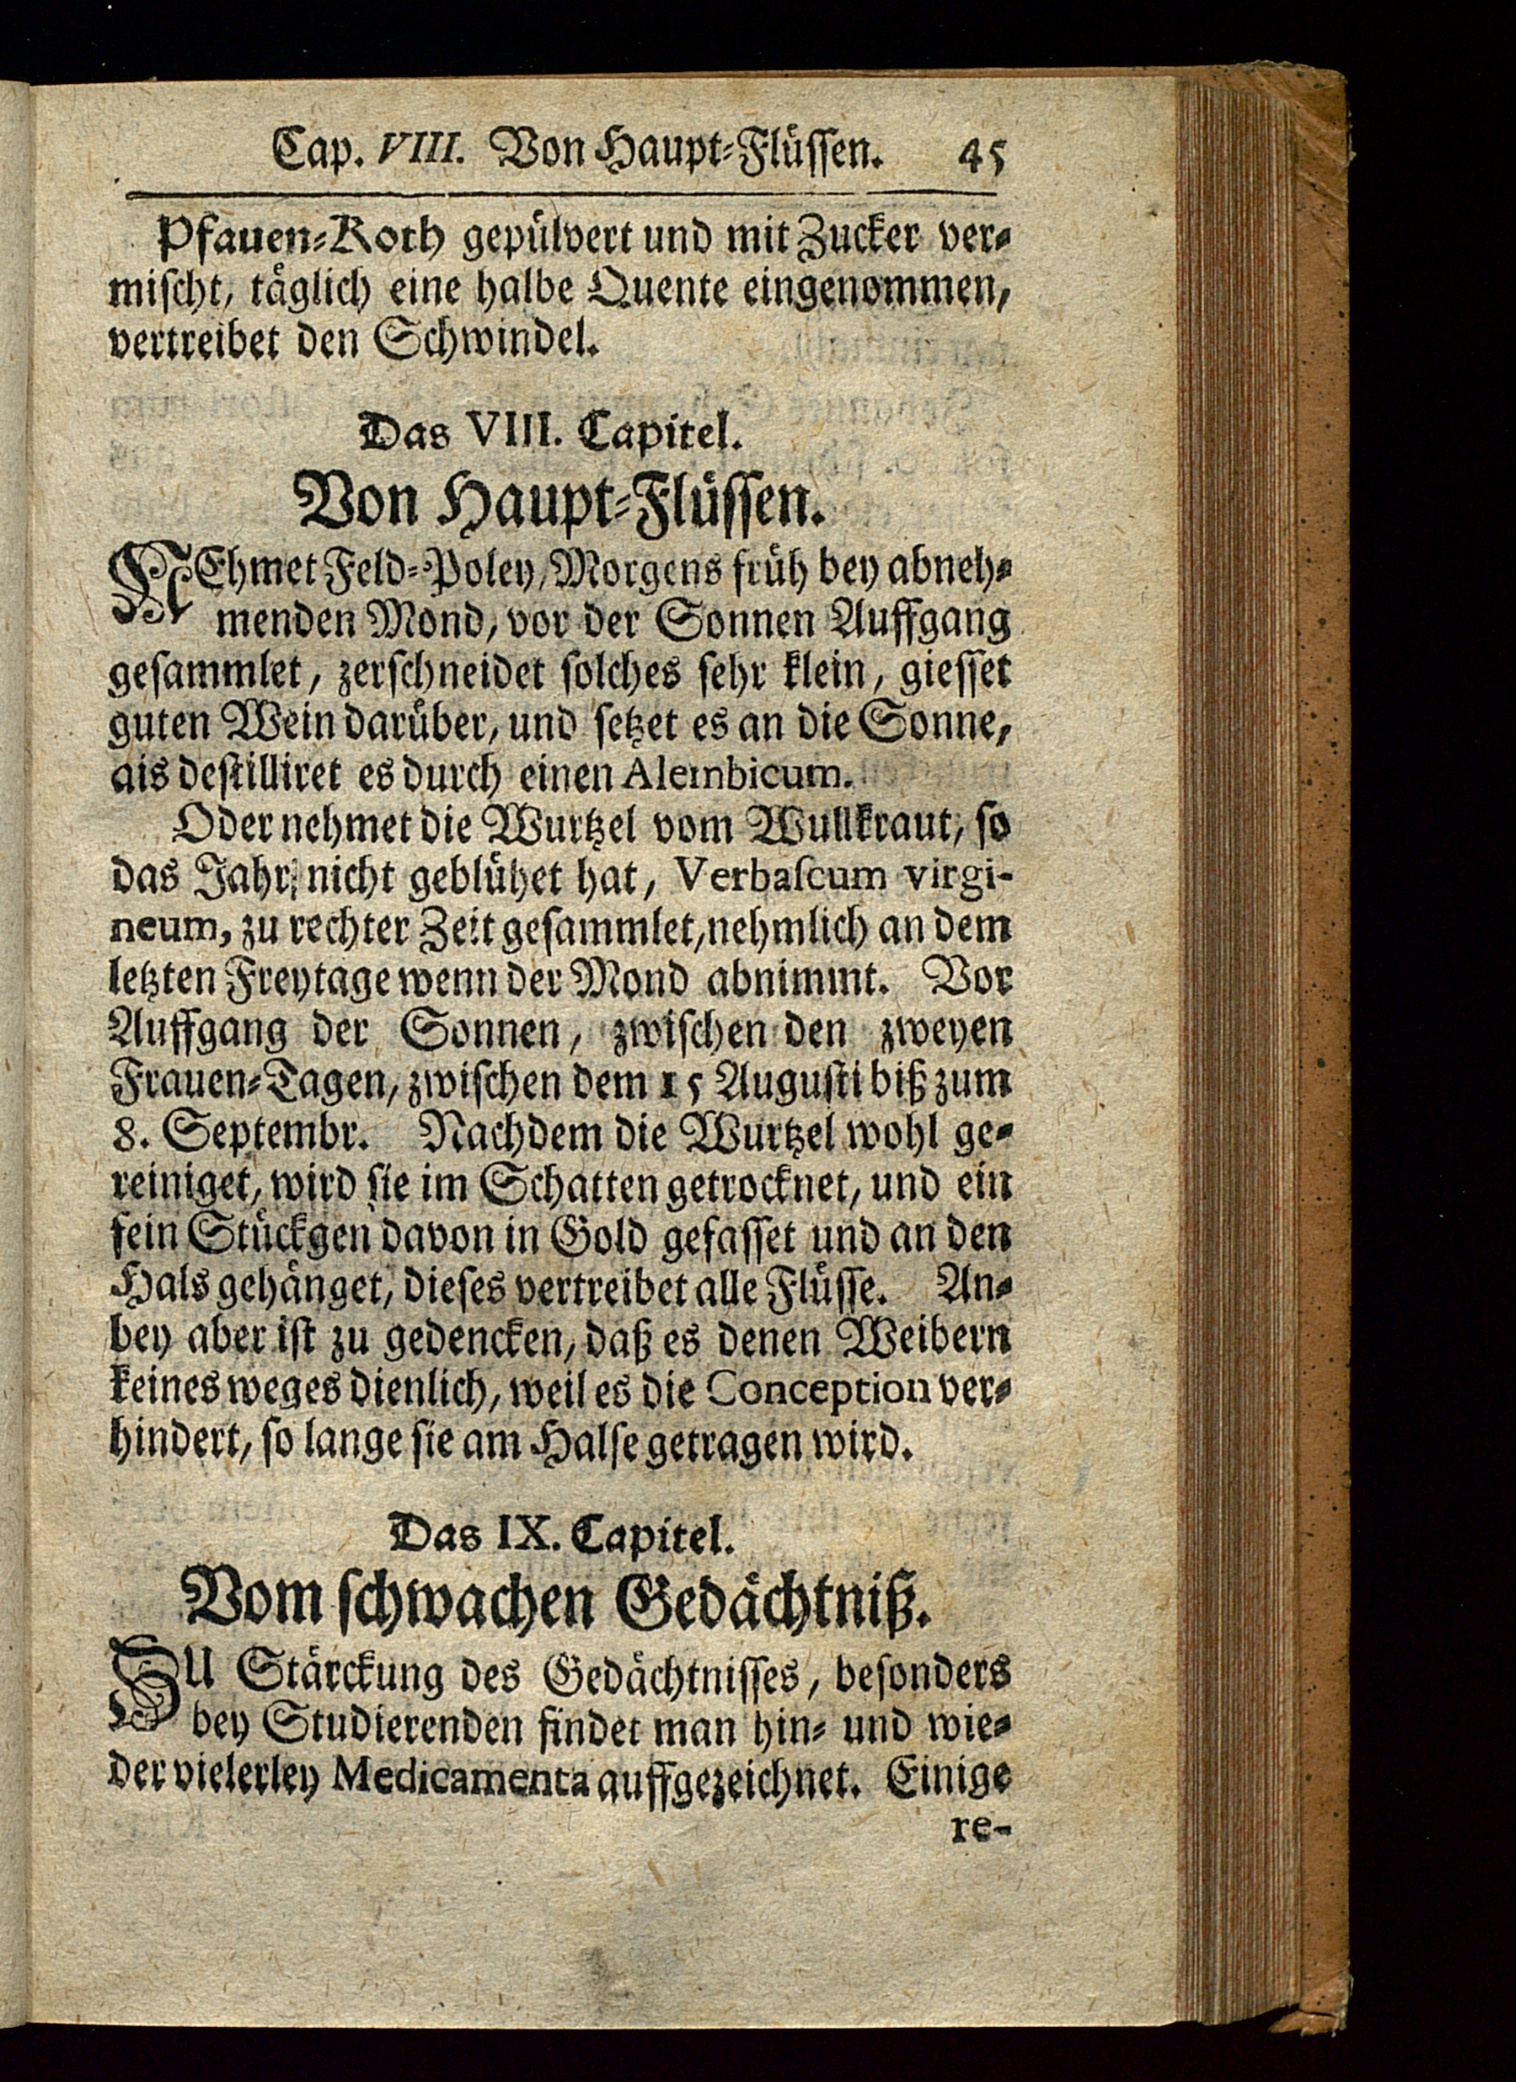 Cap. VIII. Von Haupt-Flüssen. 45
Pfauen-Koth gepülvert und mit Zucker ver-
mischt, täglich eine halbe Quente eingenommen,
vertreibet den Schwindel.
Das VIII. Capitel.
Von Haupt-Flüssen.
NEhmet Feld-Poley, Morgens früh bey abneh-
menden Mond, vor der Sonnen Auffgang
gesammlet, zerschneidet solches sehr klein, giesset
guten Wein darüber, und setzet es an die Sonne,
ais destilliret es durch einen Alembicum.
Oder nehmet die Wurtzel vom Wullkraut, so
das Jahr nicht geblühet hat, Verbascum virgi-
neum, zu rechter Zeit gesammlet, nehmlich an dem
letzten Freytage wenn der Mond abnimmt. Vor
Auffgang der Sonnen, zwischen den zweyen
Frauen-Tagen, zwischen dem 15 Augusti biß zum
8. Septembr. Nachdem die Wurtzel wohl ge-
reiniget, wird sie im Schatten getrocknet, und ein
fein Stückgen davon in Gold gefasset und an den
Hals gehänget, dieses vertreibet alle Flüsse. An-
bey aber ist zu gedencken, daß es denen Weibern
keines weges dienlich, weil es die Conception ver-
hindert, so lange sie am Halse getragen wird.
Das IX. Capitel.
Vom schwachen Gedächtniß.
ZU Stärckung des Gedächtnisses, besonders
bey Studierenden findet man hin- und wie-
der vielerley Medicamenta auffgezeichnet. Einige
re-